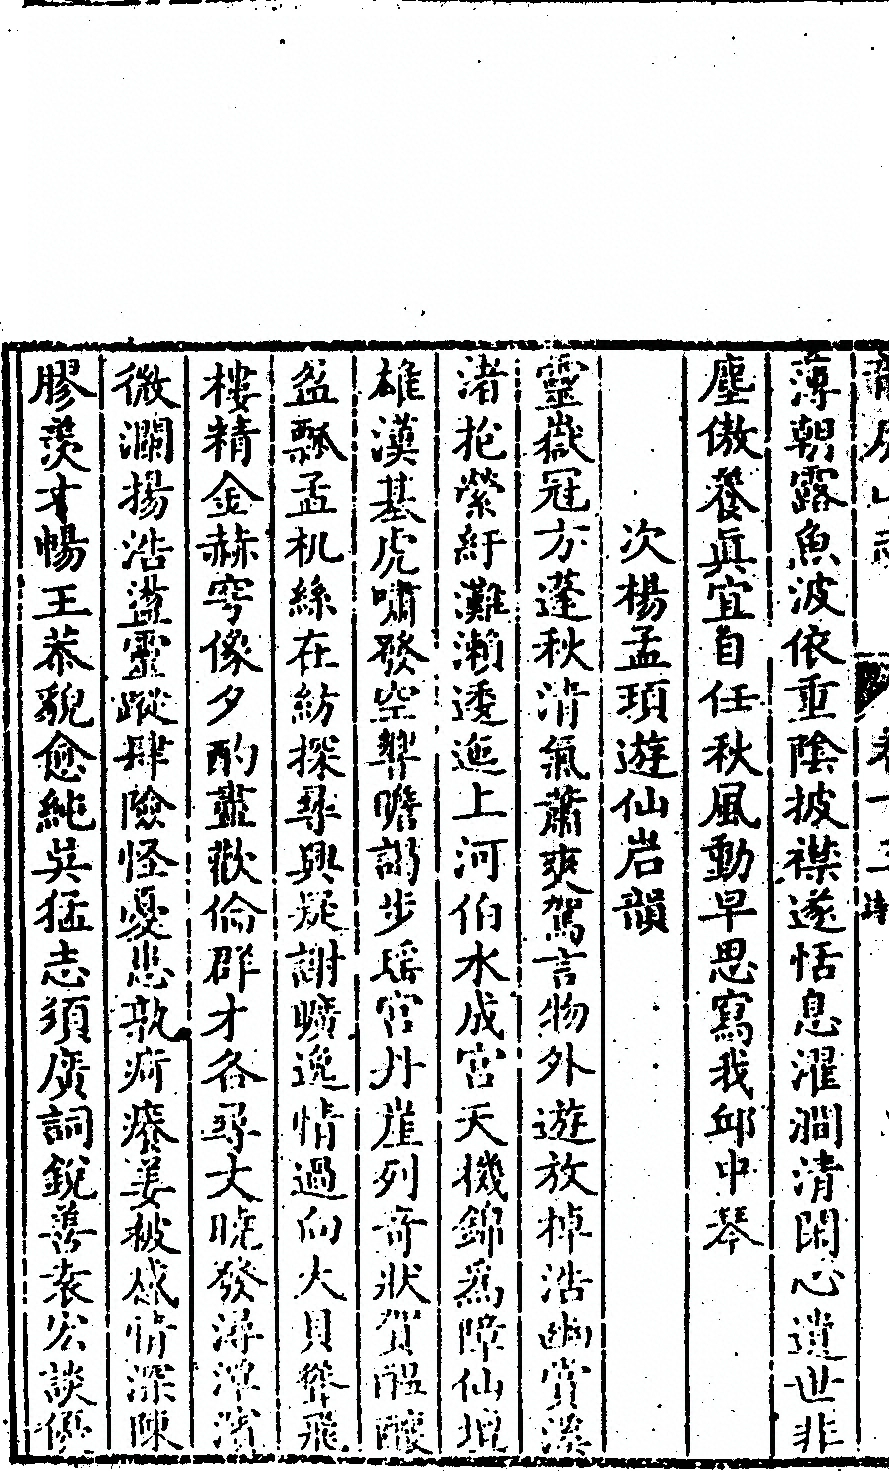 薄朝露魚波依重陰披襟遂恬息濯澗清閑心遺世非
塵傲養眞宜自任秋風動早思寫我邱中琴
次楊孟頊遊仙岩韻
靈嶽冠方蓬秋清氣蕭爽駕言物外遊放棹浩幽賞溪
渚抱縈紆灘瀨逶迤上河伯水成宮天機錦爲障仙墟
雄漢基虎嘯發空響瞻謁步瑤宮丹崖列奇狀賀醖釀
盆瓢孟机絲在紡探尋興疑謝曠逸情過向大貝聳飛
樓精金赫穹像夕酌盡歡倫群才各尋丈曉發潯潭濱
微瀾揚浩盪靈蹤肆險怪憂患執疴癢姜被感情深陳
膠羨才暢王恭貌愈純吳猛志須廣詞銳善袁宏談優